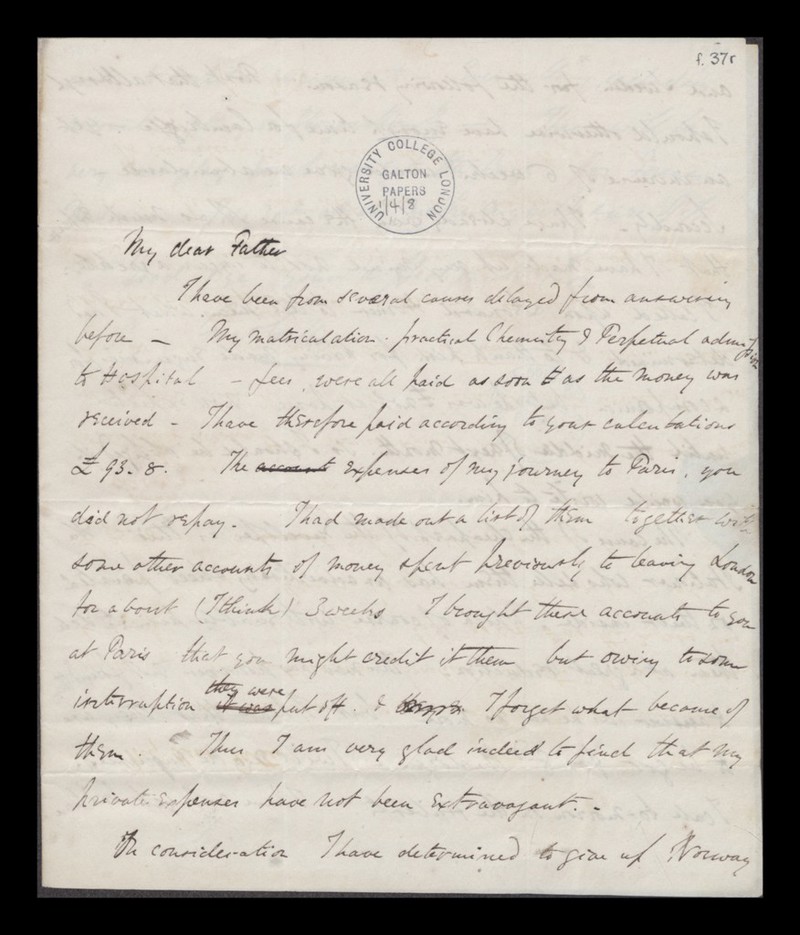 f. 37r
UNIVERSITY COLLEGE LONDON
GALTON
PAPERS
1/4/8
My dear Father
I have been from several causes delayed from answering
before — My matriculation - practical Chemistry & Perpetual admission
to Hospital - fees, were all paid as soon as the money was
received - I have therefore paid according to your calculations
£93. 8. The account expenses of my journey to Paris, you
did not repay. I had made out a list of them together with
some other accounts of money spent previously to leaving London
for about (I think) 3 weeks I brought these accounts to you
at Paris that you might credit it them but owing to some
interruption it was they were put off. & I forget what became of
them. Thus I am very glad indeed to find that my
private expenses have not been extravagant. -
In consideration I have determined to give up Norway